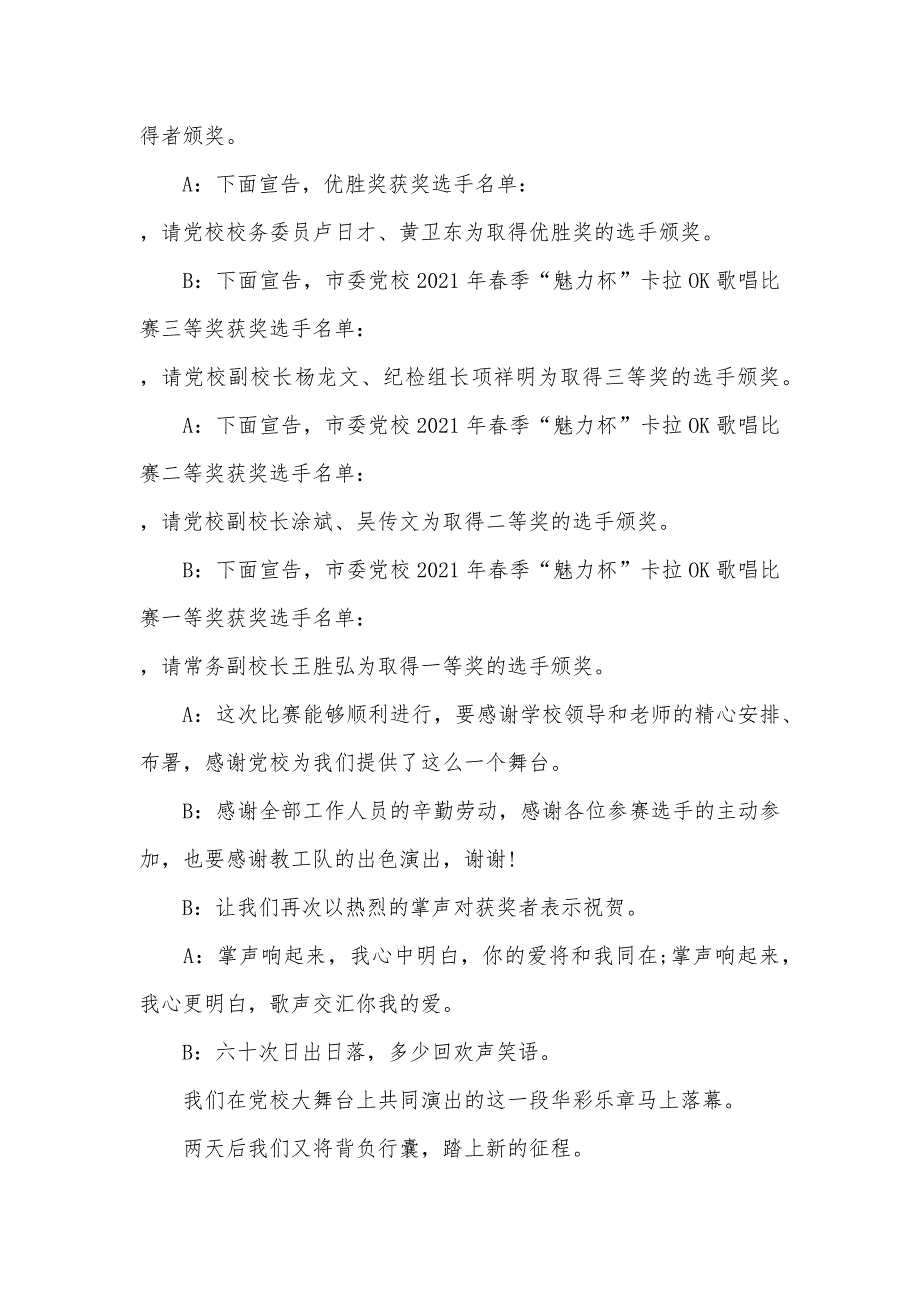 得者颁奖。
A：下面宣告，优胜奖获奖选手名单：
，请党校校务委员卢日才、黄卫东为取得优胜奖的选手颁奖。
B：下面宣告，市委党校 2021 年春季“魅力杯”卡拉 OK 歌唱比
赛三等奖获奖选手名单：
，请党校副校长杨龙文、纪检组长项祥明为取得三等奖的选手颁奖。
A：下面宣告，市委党校 2021 年春季“魅力杯”卡拉 OK 歌唱比
赛二等奖获奖选手名单：
，请党校副校长涂斌、吴传文为取得二等奖的选手颁奖。
B：下面宣告，市委党校 2021 年春季“魅力杯”卡拉 OK 歌唱比
赛一等奖获奖选手名单：
，请常务副校长王胜弘为取得一等奖的选手颁奖。
A：这次比赛能够顺利进行，要感谢学校领导和老师的精心安排、
布署，感谢党校为我们提供了这么一个舞台。
B：感谢全部工作人员的辛勤劳动，感谢各位参赛选手的主动参
加，也要感谢教工队的出色演出，谢谢!
B：让我们再次以热烈的掌声对获奖者表示祝贺。
A：掌声响起来，我心中明白，你的爱将和我同在;掌声响起来，
我心更明白，歌声交汇你我的爱。
B：六十次日出日落，多少回欢声笑语。
我们在党校大舞台上共同演出的这一段华彩乐章马上落幕。
两天后我们又将背负行囊，踏上新的征程。